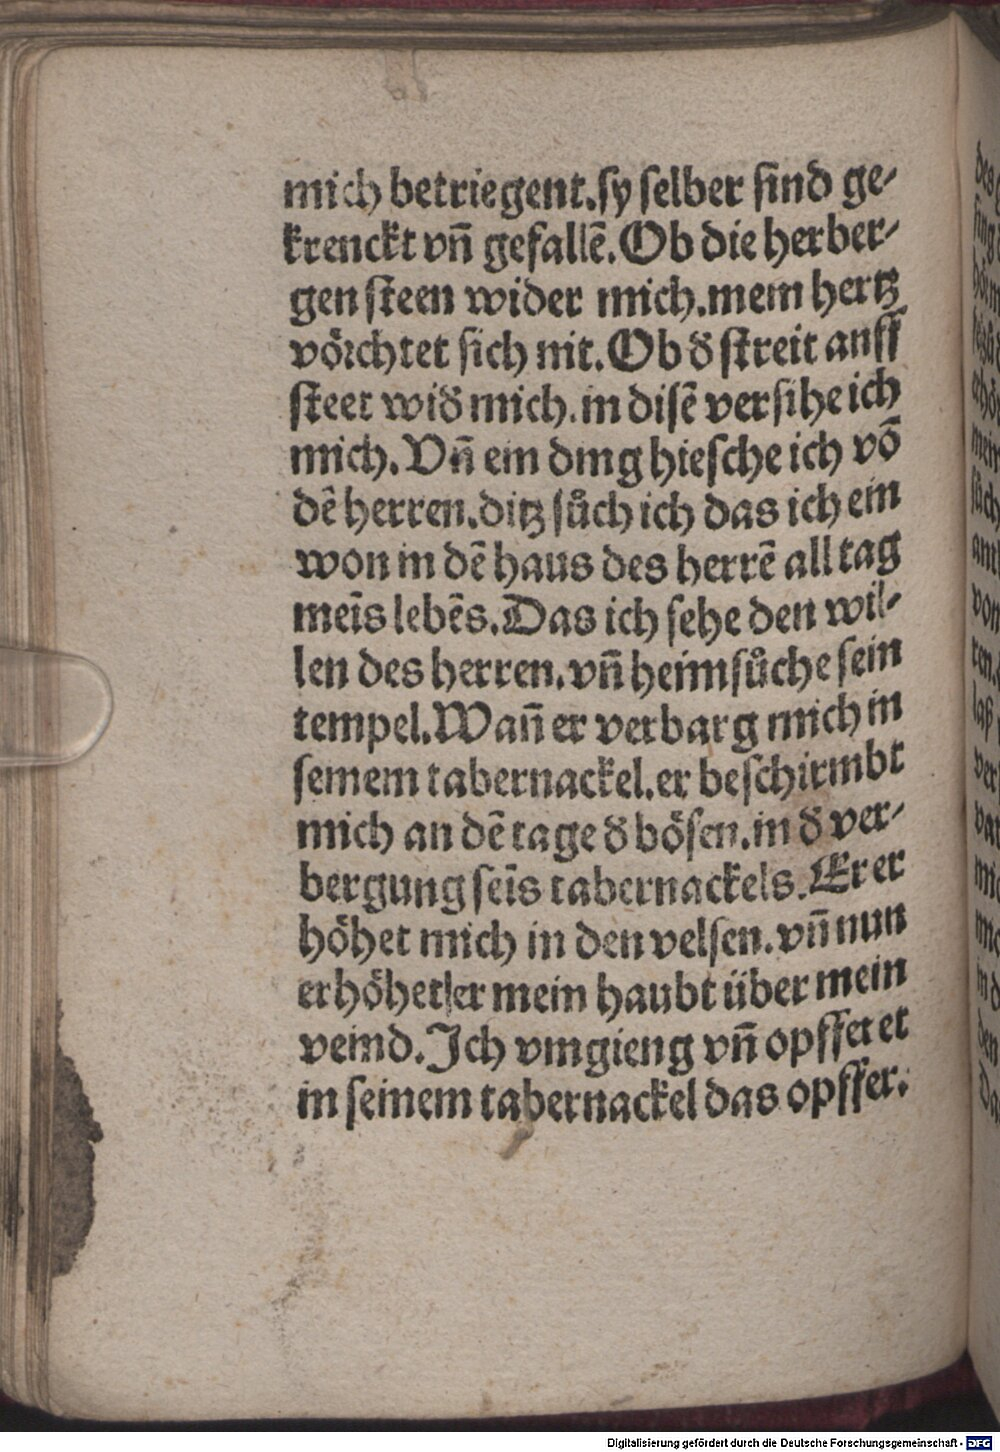 mich betriegent.sy selber sind ge⸗
krenckt vn̄ gefallē.Ob die herber⸗
gen steen wider mich.mein hertz
vörchtet sich nit.Ob d̕ streit auff
steet wid̕ mich.in disē versihe ich
mich.Vn̄ ein ding hiesche ich vō
dē herren.ditz sůch ich das ich ein
won in dē haus des herrē all tag
meīs lebēs.Das ich sehe den wil⸗
len des herren.vn̄ heimsůche sein
tempel.Wan̄ er verbarg mich in
seinem tabernackel.er beschirmbt
mich an dē tage d̕ bösen.in d̕ ver⸗
bergung seīs tabernackels.Er er
höhet mich in den velsen.vn̄ nun
erhöhet er mein haubt über mein
veind.Ich vmgieng vn̄ opffet et
in seinem tabernackel das opffer.
Digitalisierung gefördert durch die Deutsche Forschungsgemeinschaft - DFG